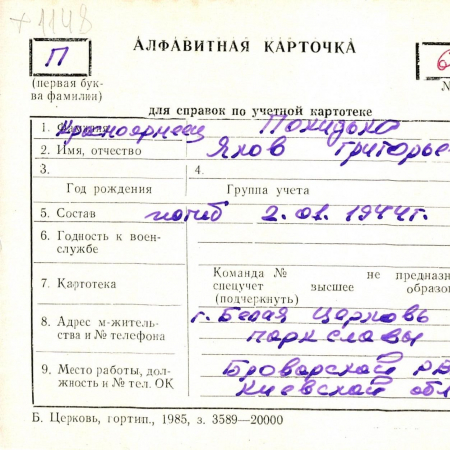 +1148
П
АЛФАВИТНАЯ КАРТОЧКА
(первая бук-
ва фамилии)
№
для справок по учетной картотеке
1. Фамилия Красноярнеец Покидько
2. Имя, отчество Яков Григорье
3.
4.
Год рождения
Группа учета
5. Состав погиб 2.01.1944г.
6. Годность к воен-
службе
7. Картотека
Команда № не предназн
спецучет высшее образо
(подчеркнуть)
8. Адрес м-житель-
ства и № телефона
г. Белая Церковь
парк славы
9. Место работы, дол-
жность и № тел. ОК
Броварской
Киевской обл
Б. Церковь, гортип., 1985, з. 3589—20000